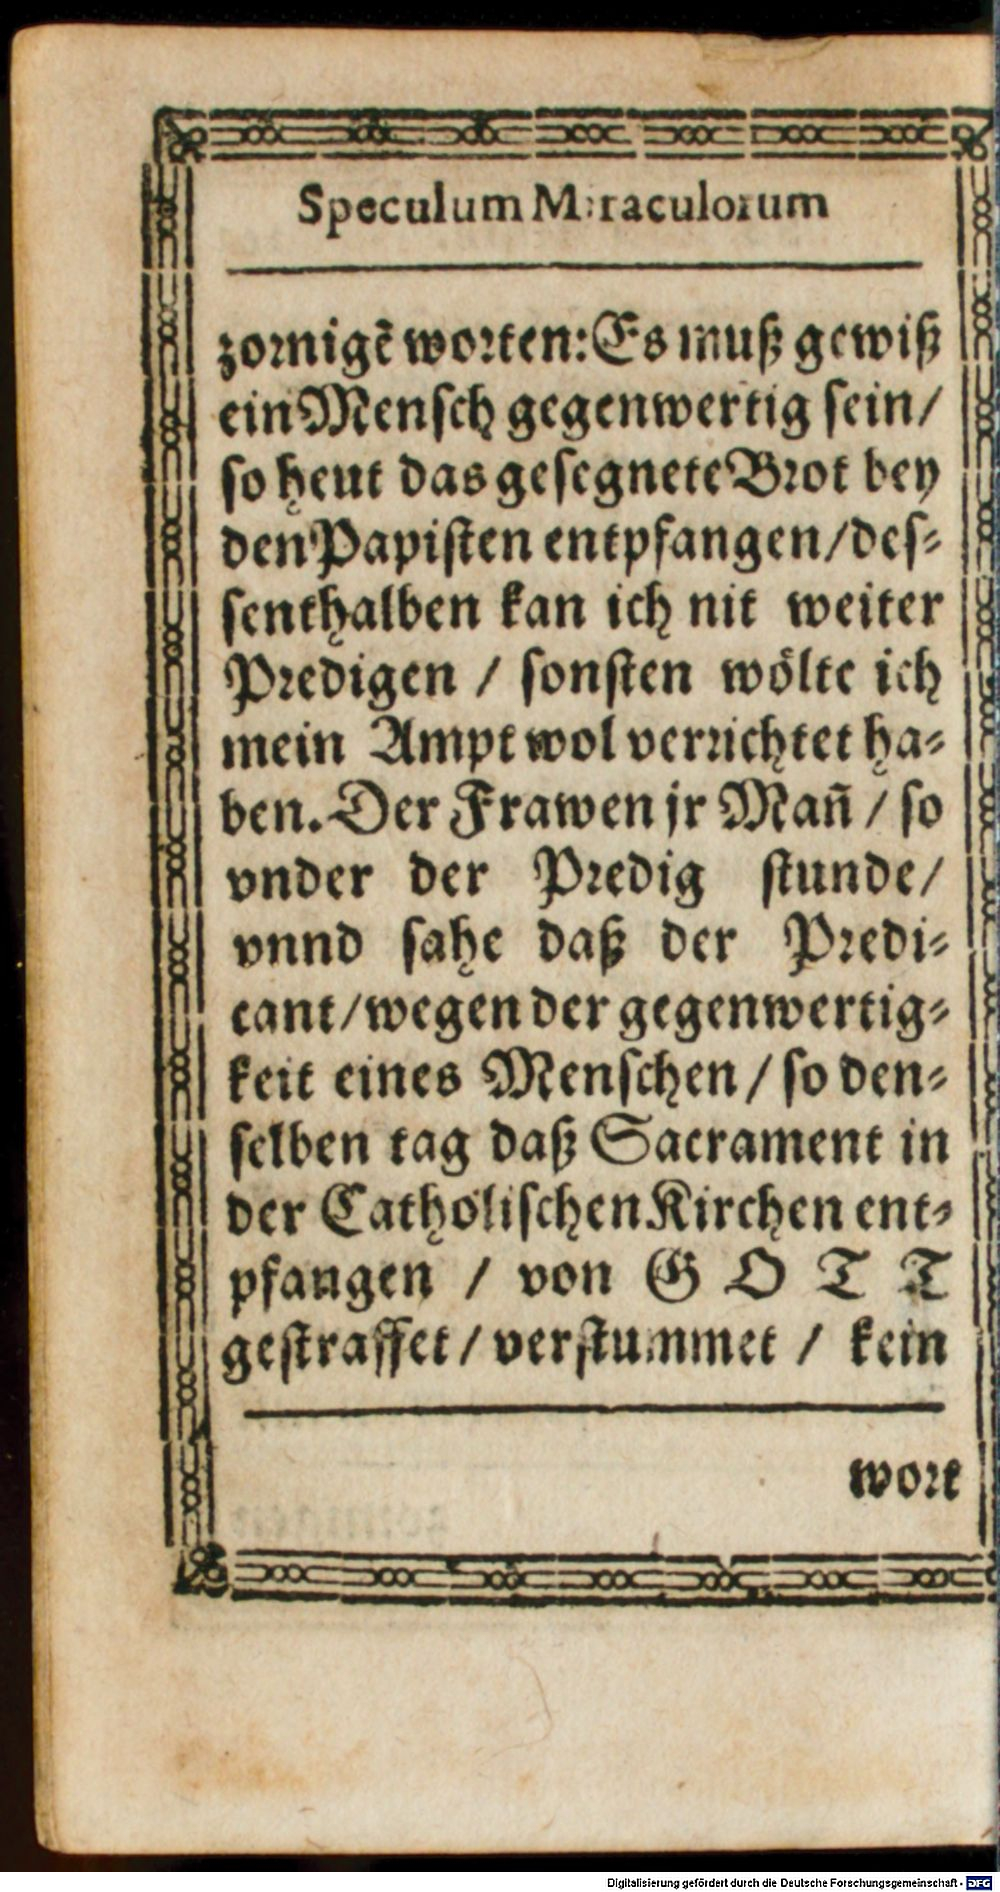 Speculum Miraculorum
zornigẽ worten: Es muß gewiß
ein Mensch gegenwertig sein/
so heut das gesegnete Brot bey
den Papisten entpfangen/des-
senthalben kan ich nit weiter
Predigen / sonsten wölte ich
mein Ampt wol verrichtet ha-
ben. Der Frawen jr Mañ / so
vnder der Predig stunde/
vnnd sahe daß der Predi-
cant/wegen der gegenwertig-
keit eines Menschen / so den-
selben tag daß Sacrament in
der Catholischen Kirchen ent-
pfangen / von G O T T
gestraffet / verstummet / kein
wort
Digitalisierung gefördert durch die Deutsche Forschungsgemeinschaft - DFG